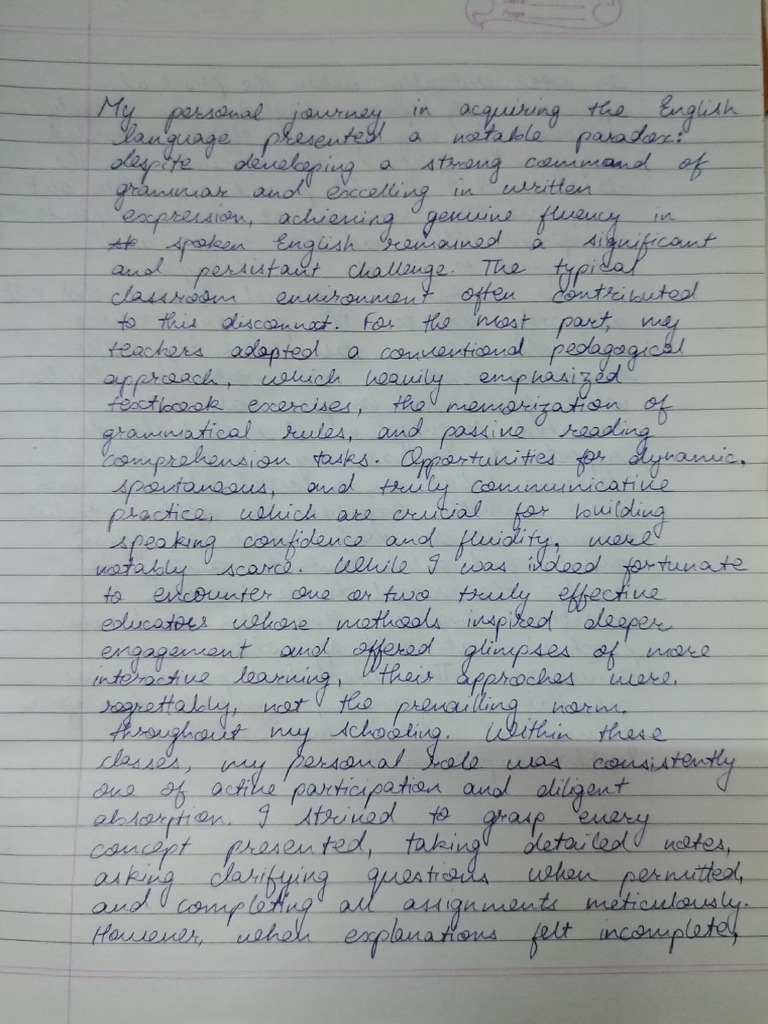 My personal journey in acquiring the English
language presented a notable paradox:
despite developing a strong command of
grammar and excelling in written
expression, achieving genuine fluency in
spoken English remained a significant
and persistant challenge. The typical
classroom environment often contributed
to this disconnect. For the most part, my
teachers adopted a conventional pedagogical
approach, which heavily emphasized
textbook exercises, the memorization of
grammatical rules, and passive reading
comprehension tasks. Opportunities for dynamic,
spontaneous, and truly communicative
practice, which are crucial for building
speaking confidence and fluidity, were
notably scarce. While I was indeed fortunate
to encounter one or two truly effective
educators whose methods inspired deeper
engagement and offered glimpses of more
interactive learning, their approaches were,
regrettably, not the prevailling norm.
throughout my schooling. Within these
classes, my personal role was consistently
one of active participation and diligent
absorption. I strived to grasp every
concept presented, taking detailed notes,
asking clarifying questions when permitted,
and completing all assignments meticulously.
However, when explanations felt incomplete,